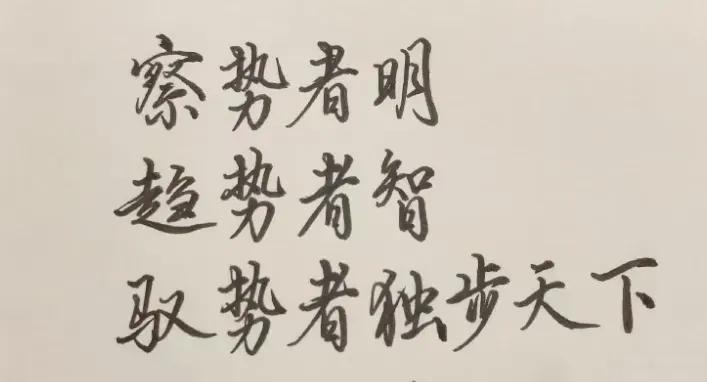 察势者明
趋势者智
驭势者独步天下